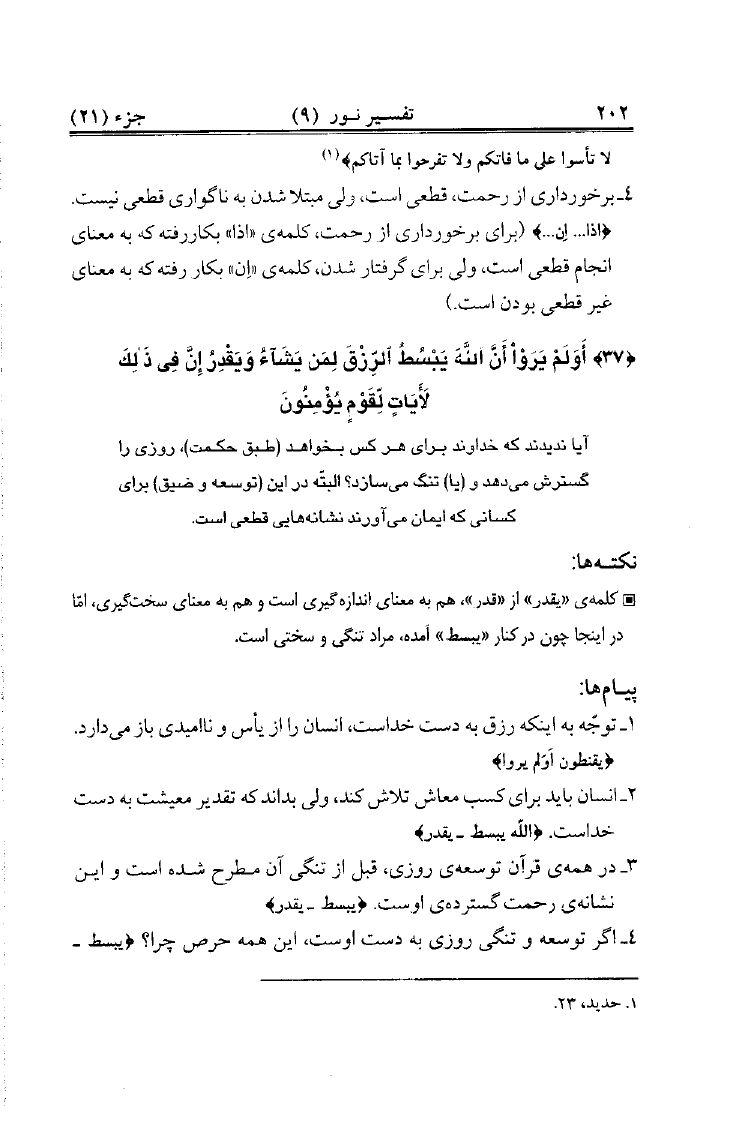 ۲۰۲ تفسیر نور (۹) جزء (۲۱)
لا تأسوا على ما فاتكم ولا تفرحوا بما آتاكم﴾(۱)
٤ـ برخورداری از رحمت، قطعی است، ولی مبتلا شدن به ناگواری قطعی نیست.
﴿اذا... إن...﴾ (برای برخورداری از رحمت، کلمه‌ی «اذا» بکاررفته که به معنای
انجام قطعی است، ولی برای گرفتار شدن، کلمه‌ی «إن» بکار رفته که به معنای
غیر قطعی بودن است.)
﴿۳۷﴾ أَوَلَمْ يَرَوْاْ أَنَّ اللَّهَ يَبْسُطُ ٱلرِّزْقَ لِمَن يَشَآءُ وَيَقْدِرُ إِنَّ فِى ذَٰلِكَ
لَأَيَاتٍ لِّقَوْمٍ يُؤْمِنُونَ
آیا ندیدند که خداوند برای هر کس بخواهد (طبق حکمت)، روزی را
گسترش می‌دهد و (یا) تنگ می‌سازد؟ البتّه در این (توسعه و ضیق) برای
کسانی که ایمان می‌آورند نشانه‌هایی قطعی است.
نکته‌ها:
▣ کلمه‌ی «یقدر» از «قدر»، هم به معنای اندازه‌گیری است و هم به معنای سخت‌گیری، امّا
در اینجا چون در کنار «یبسط» آمده، مراد تنگی و سختی است.
پیام‌ها:
۱ـ توجّه به اینکه رزق به دست خداست، انسان را از یأس و ناامیدی باز می‌دارد.
﴿يقنطون أوَلم يروا﴾
۲ـ انسان باید برای کسب معاش تلاش کند، ولی بداند که تقدیر معیشت به دست
خداست. ﴿اللّه يبسط ـ يقدر﴾
۳ـ در همه‌ی قرآن توسعه‌ی روزی، قبل از تنگی آن مطرح شده است و این
نشانه‌ی رحمت گسترده‌ی اوست. ﴿يبسط ـ يقدر﴾
٤ـ اگر توسعه و تنگی روزی به دست اوست، این همه حرص چرا؟ ﴿يبسط ـ
۱. حدید، ۲۳.